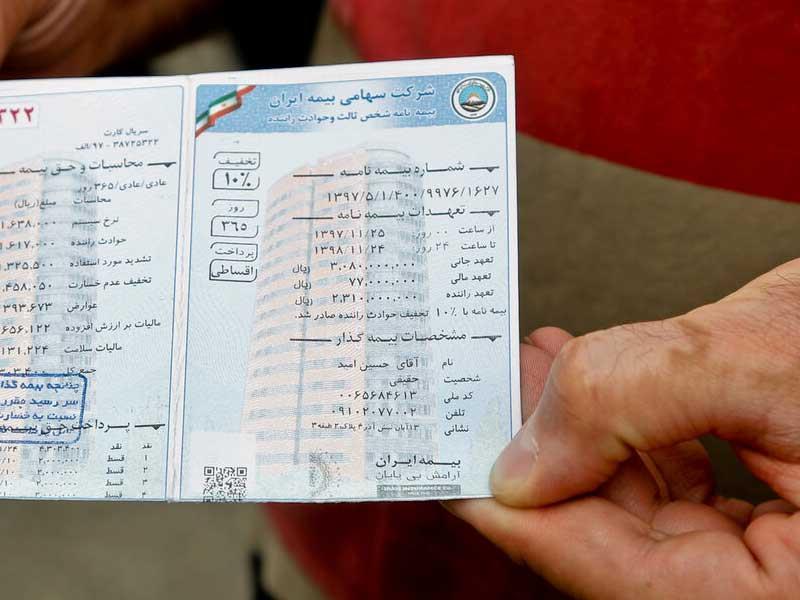 شرکت سهامی بیمه ایران
بیمه نامه شخص ثالث وحوادث راننده
تخفیف
۱۰٪
روز
۳۶۵
پرداخت
اقساطی
شماره بیمه نامه
۱۳۹۷/۵/۱/۴۰۰/۹۹۷۶/۱۶۲۷
تعهدات بیمه نامه
از ساعت ۰۰ روز ۱۳۹۷/۱۱/۲۵
تا ساعت ۲۴ روز ۱۳۹۸/۱۱/۲۴
تعهد جانی ۳,۰۸۰,۰۰۰,۰۰۰ ریال
تعهد مالی ۷۷,۰۰۰,۰۰۰ ریال
تعهد راننده ۲,۳۱۰,۰۰۰,۰۰۰ ریال
بیمه نامه با ۱۰٪ تخفیف حوادث راننده صادر شد.
مشخصات بیمه گذار
نام آقای حسین امید
شخصیت حقیقی
کد ملی ۰۰۶۵۶۸۴۶۱۳
تلفن ۰۹۱۰۲۰۷۷۰۰۲
نشانی ۱۳آبان نبش آذر۴ پلاک۲ طبقه۳
بیمه ایران
آرامش بی پایان
۳۲۲
سریال کارت
۹۷/الف - ۳۸۷۲۵۳۲۲
محاسبات و حق بیمه
عادی/عادی/۳۶۵ روز
محاسبات مبلغ(ریال)
نرخ سیستم
حوادث راننده
تشدید مورد استفاده
تخفیف عدم خسارت
عوارض
مالیات بر ارزش افزوده
مالیات سلامت
جمع کل
چنانچه بیمه گذا
سر رسید مقرر
نسبت به خسارت
پرداخت حق بیمه
نقد
۱ قسط
۲ قسط
۳ قسط
۴ قسط